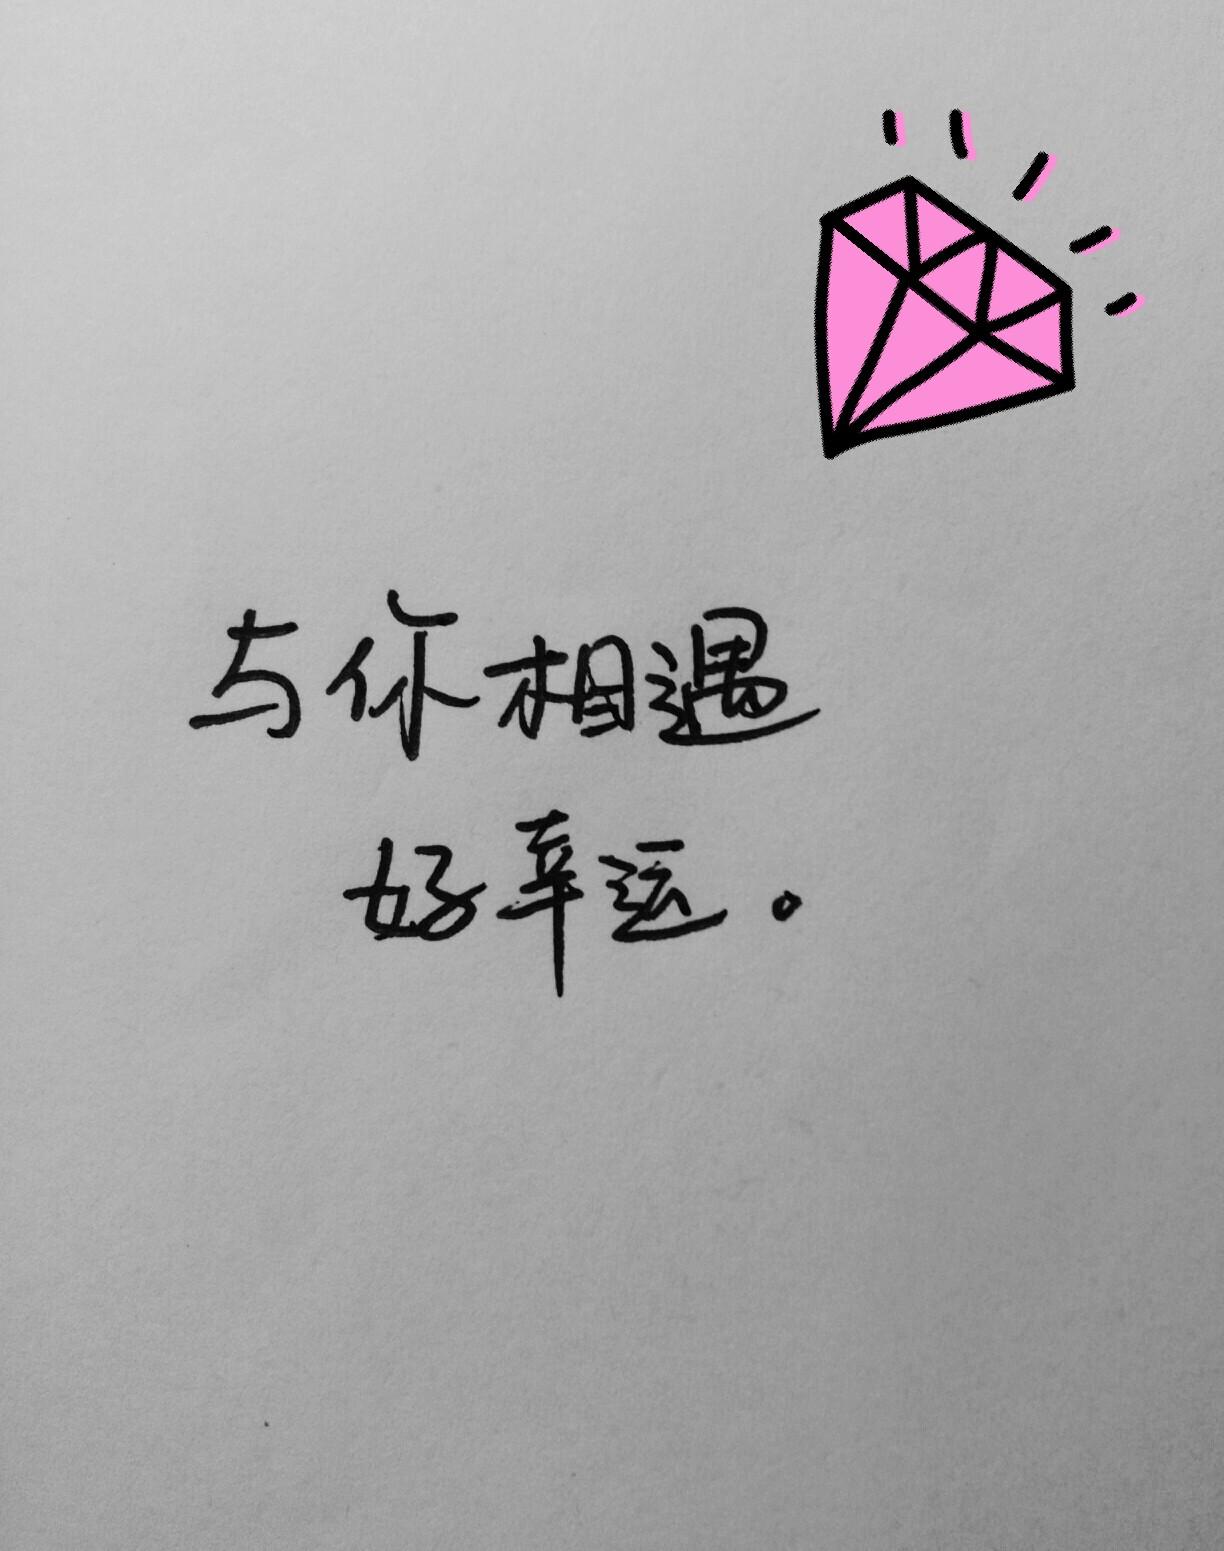 与你相遇
好幸运。